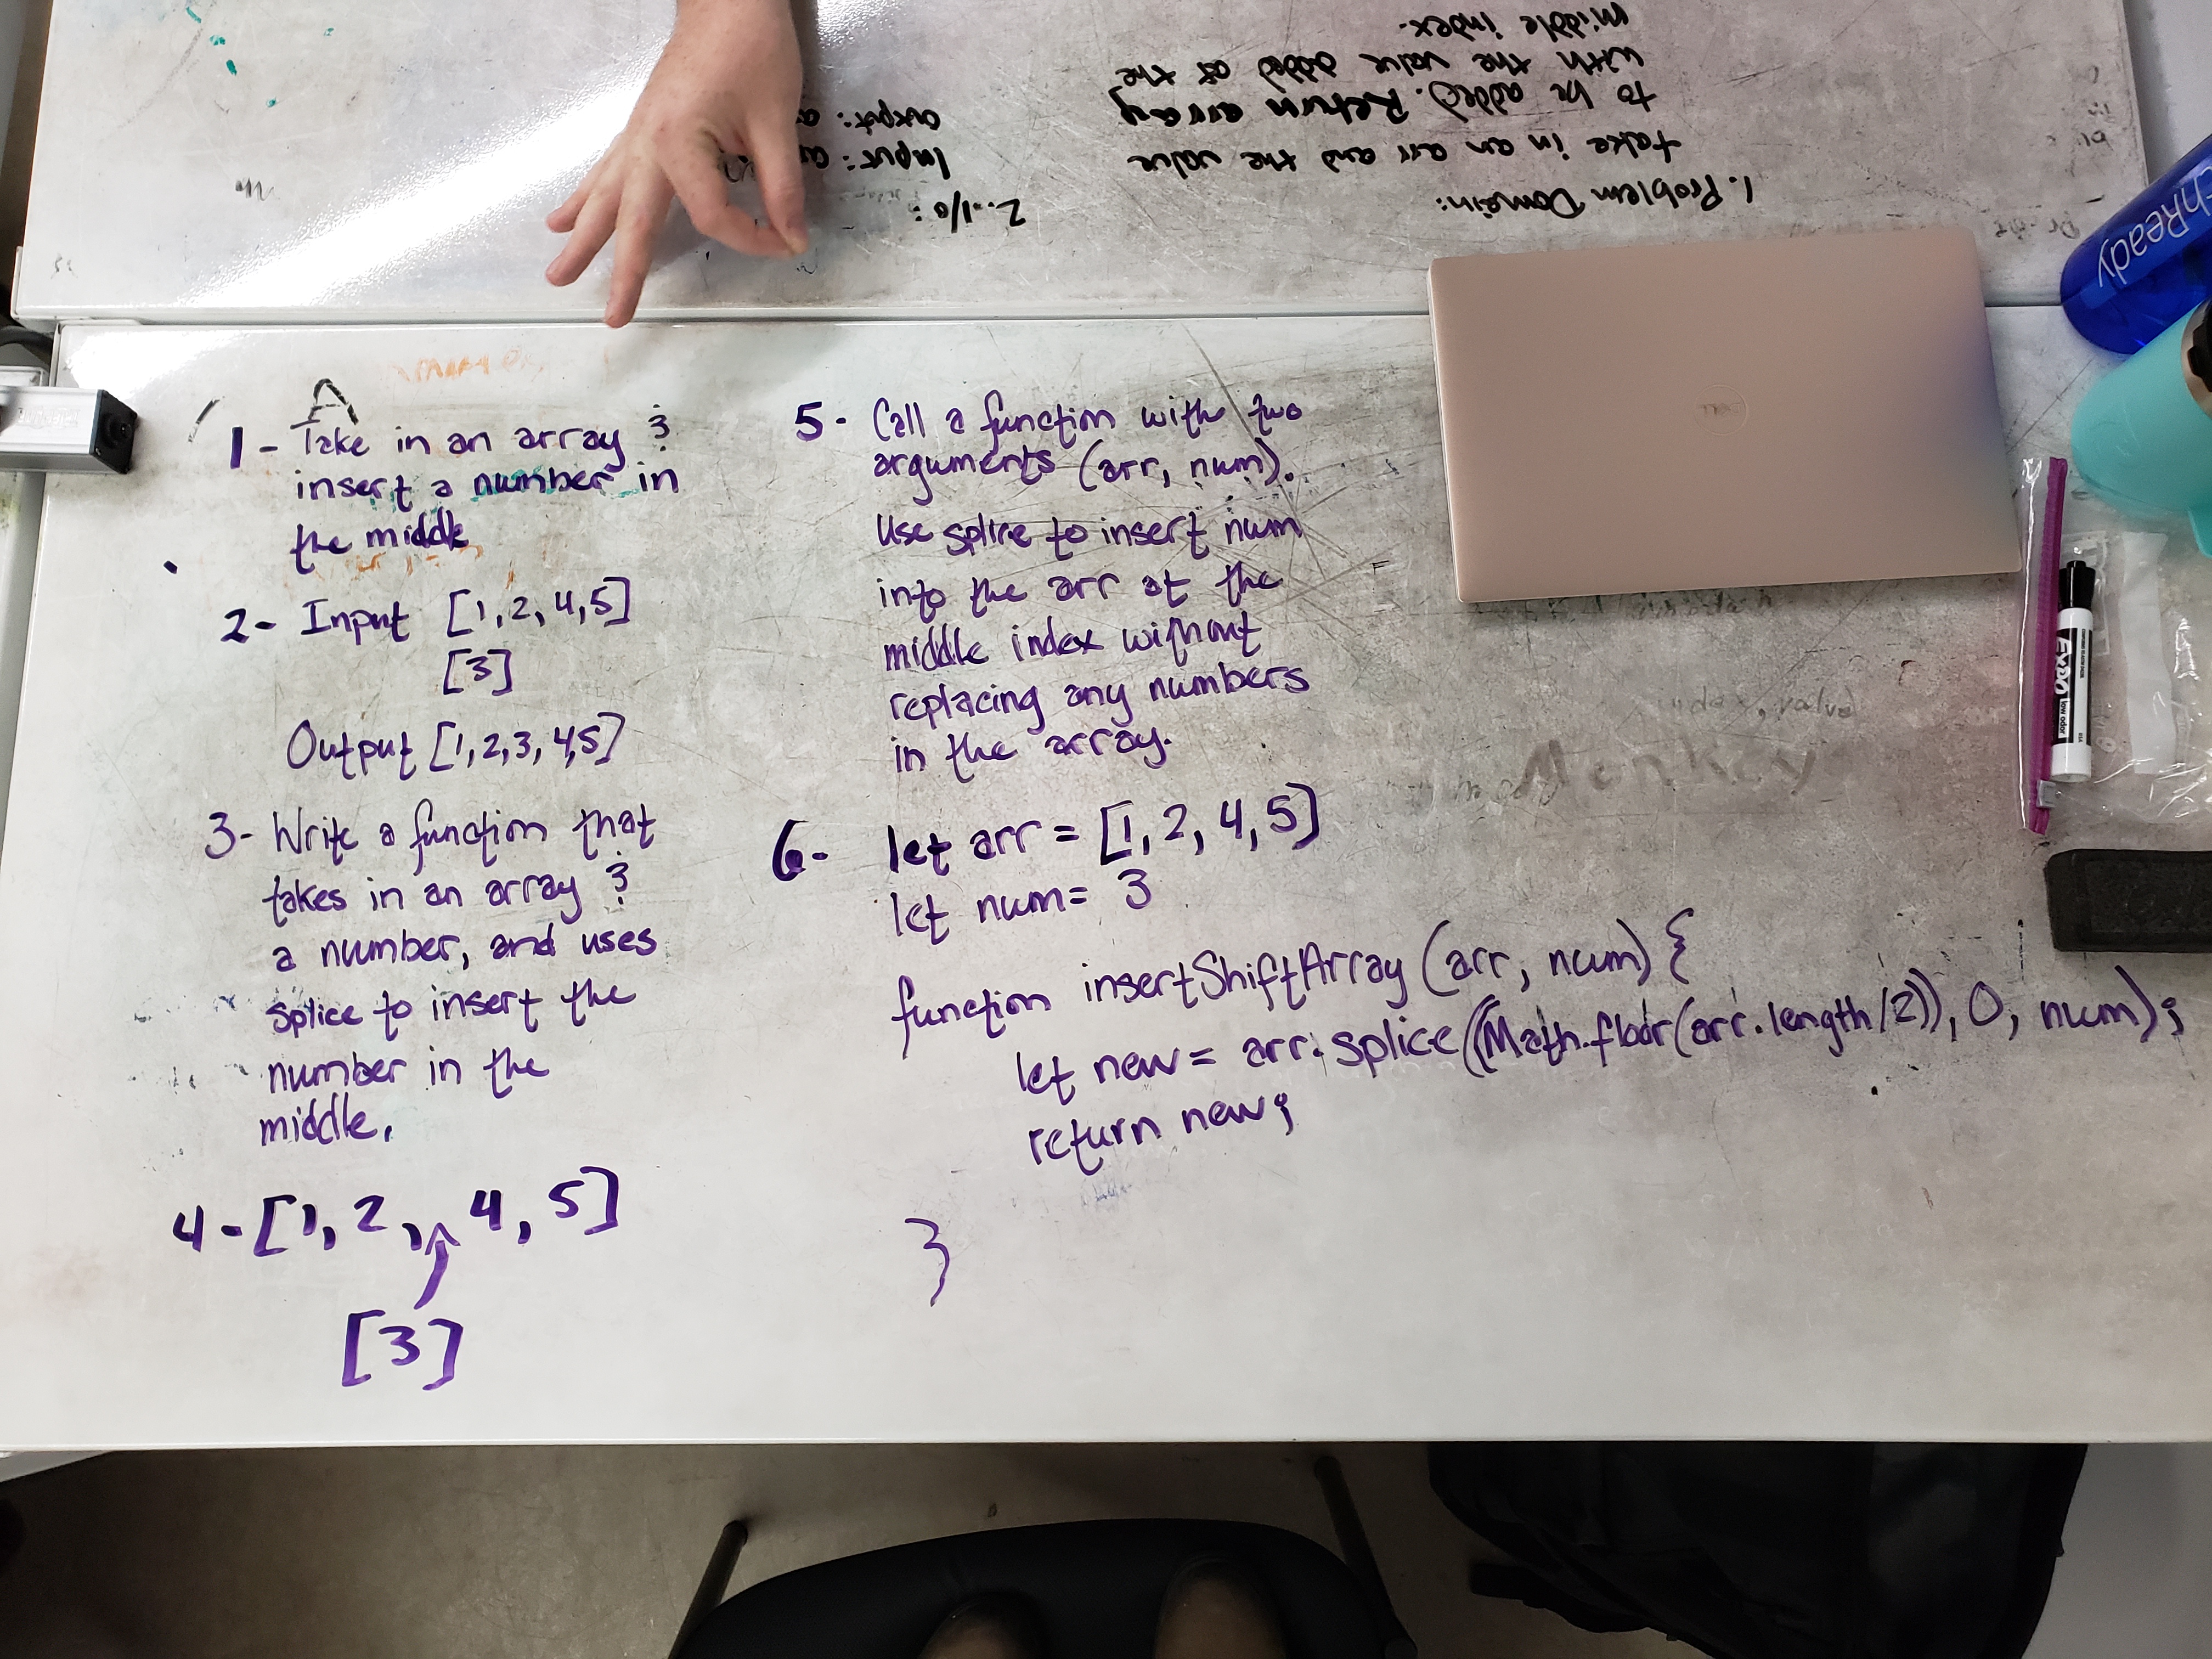 1. Problem Domain:
take in an arr and the value
to be added. Return array
with the value added at the
middle index.
2. I/O:
Input:
output:
chReady
DELL
1- Take in an array &
insert a number in
the middle
2- Input [1, 2, 4, 5]
[3]
Output [1, 2, 3, 4, 5]
3- Write a function that
takes in an array &
a number, and uses
splice to insert the
number in the
middle.
4- [1, 2, 4, 5]
[3]
5- Call a function with two
arguments (arr, num).
Use splice to insert num
into the arr at the
middle index without
replacing any numbers
in the array.
6- let arr = [1, 2, 4, 5]
let num = 3
function insertShiftArray (arr, num) {
let new = arr.splice((Math.floor(arr.length/2)), 0, num);
return new;
}
index, value
Monkey
EXPO
low odor